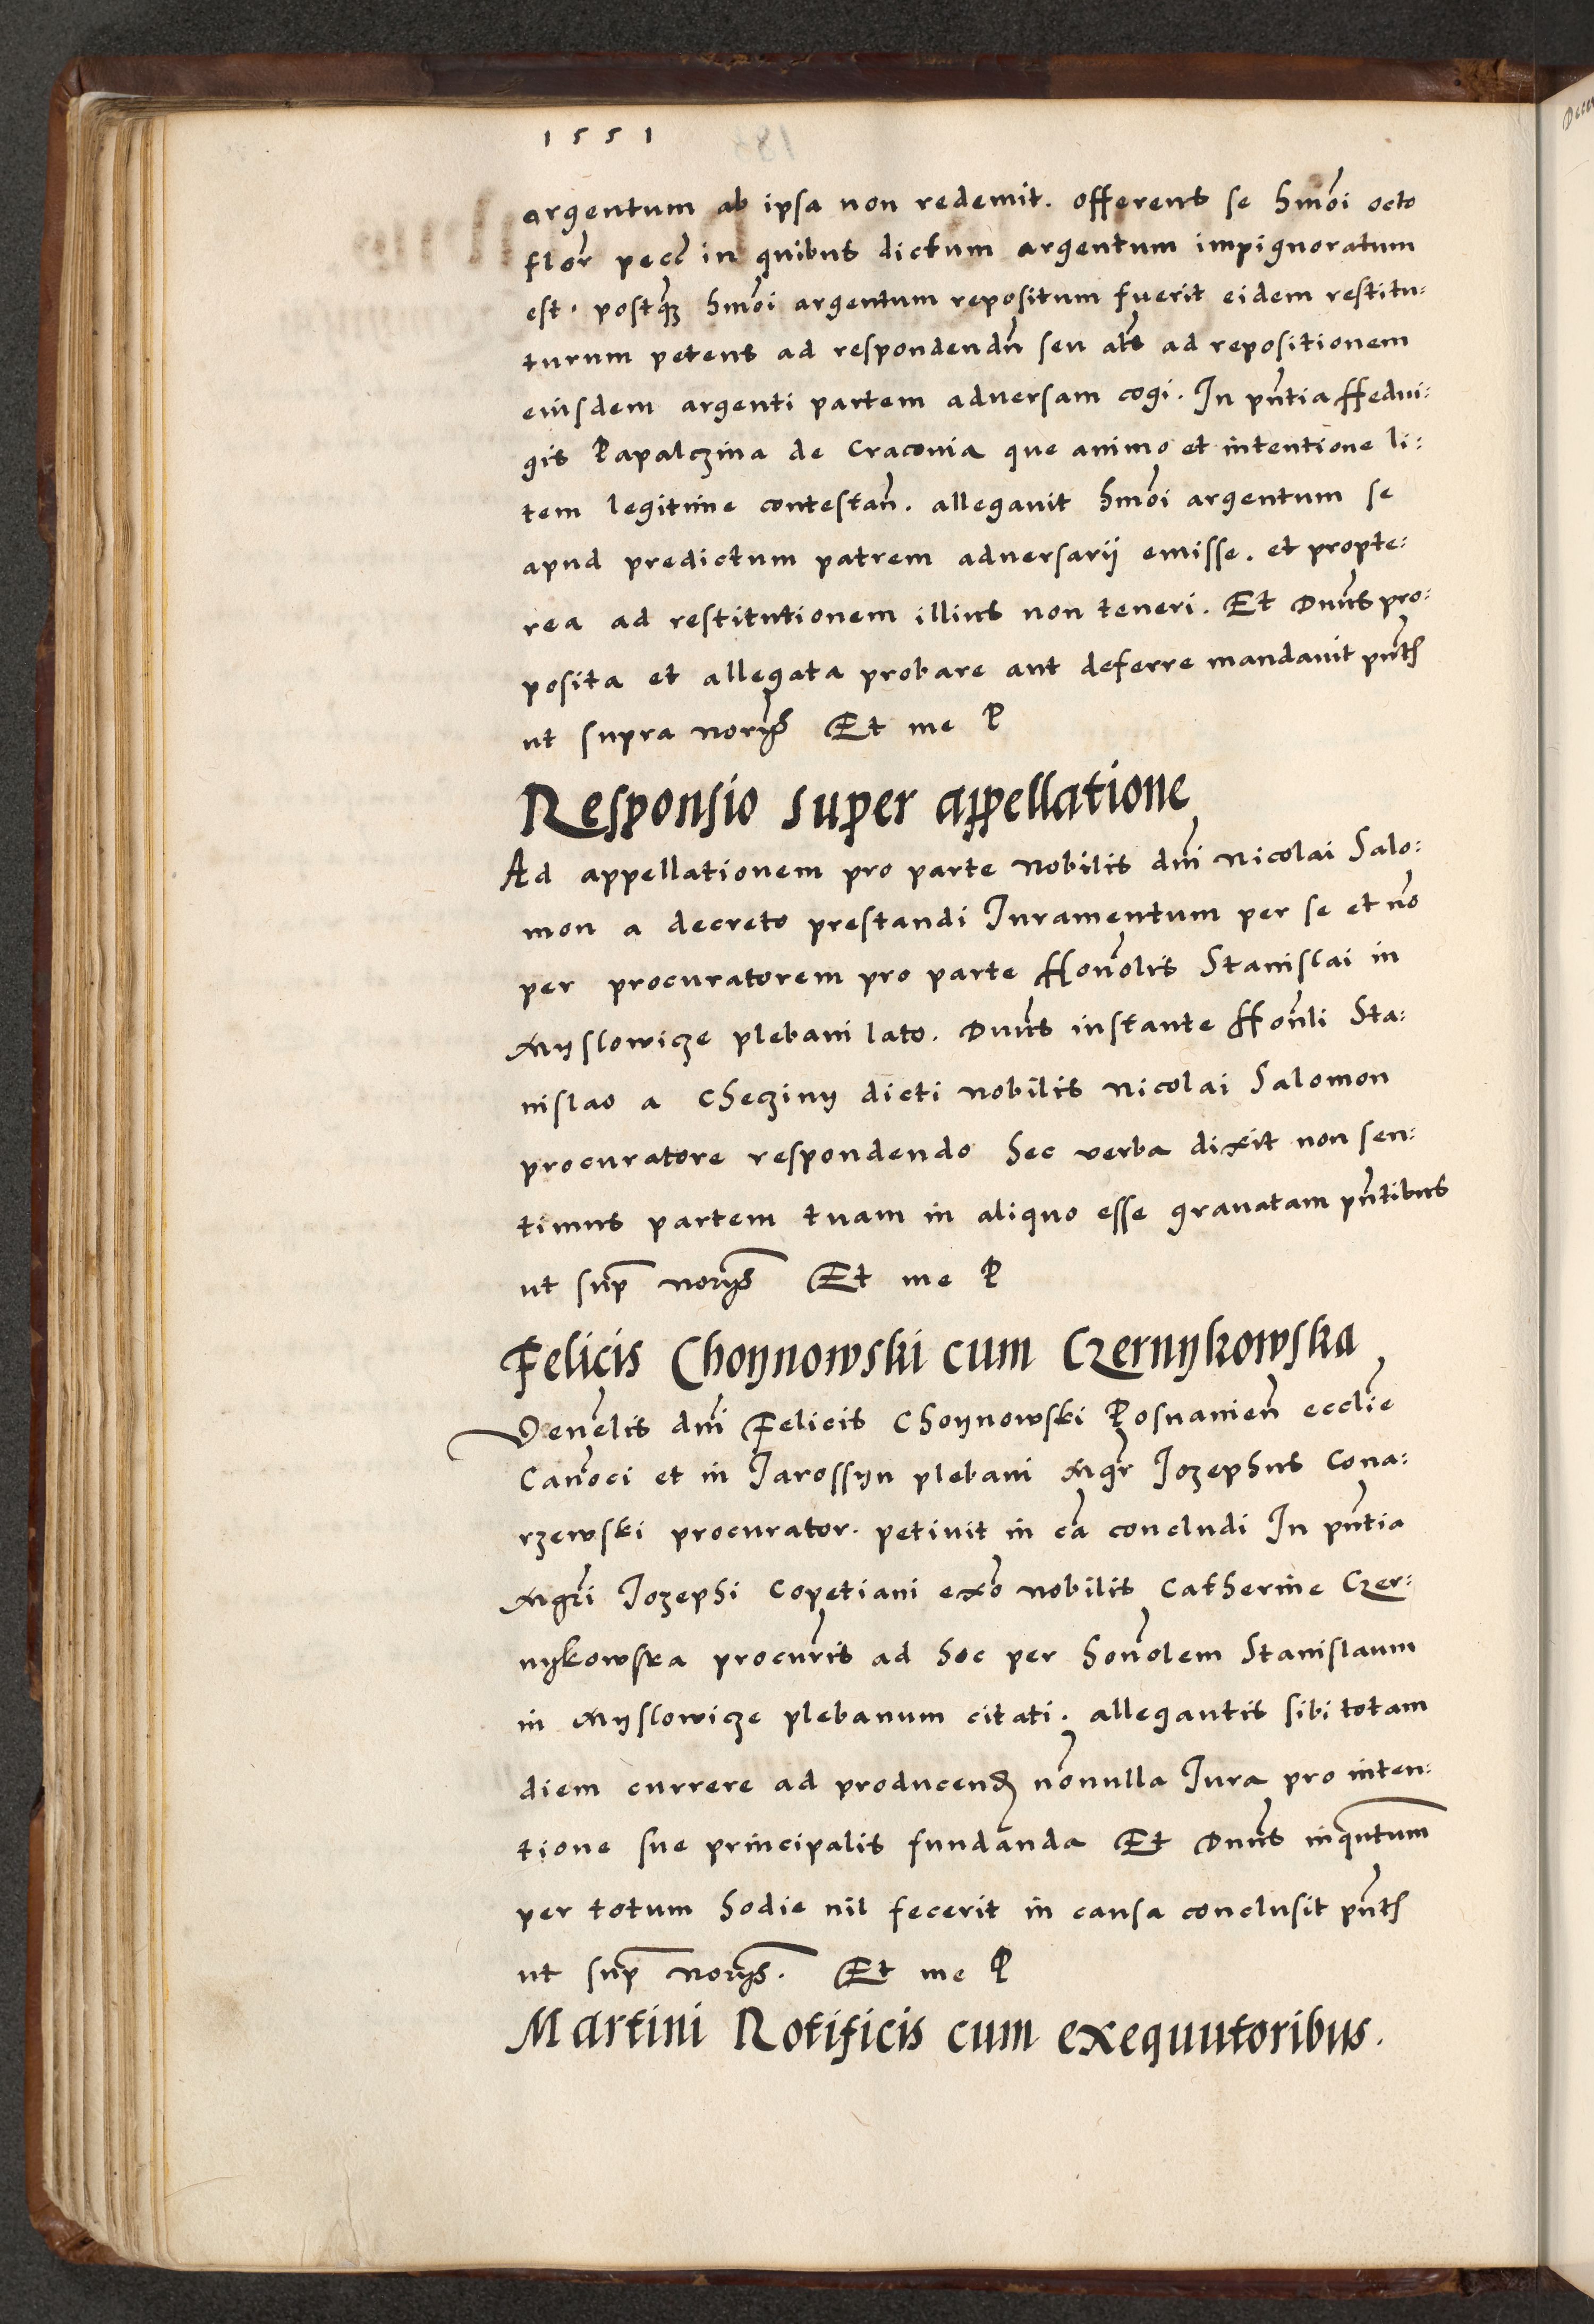 1551
argentum ab ipsa non redemit. offerens se hmōi octo
flor̄ pecc̄ in quibus dictum argentum impignoratum
est. postqȝ hmōi argentum repositum fuerit eidem restitu:
turum petens ad respondendn̄ seu als̄ ad repositionem
eiusdem argenti partem adversam cogi. In pn̄tia Hedui:
gis Papalczina de Cracovia que animo et intentione li:
tem legitime contestan̄. allegavit hmōi argentum se
apud predictum patrem adversarij emisse. et propte:
rea ad restitutionem illius non teneri. Et Dnūs pro:
posita et allegata probare aut deferre mandavit pn̄tƺ
ut supra norijs Et me P
Responsio super appellatione
Ad appellationem pro parte Nobilis dnī Nicolai Salo:
mon a decreto prestandi Iuramentum per se et nō
per procuratorem pro parte Honōlis Stanislai in
Myslowicze plebani lato. Dnūs instante Honl̄i Sta:
nislao a Checziny dicti nobilis Nicolai Salomon
procuratore respondendo hec verba dixit non sen:
timus partem tuam in aliquo esse gravatam pn̄tibus
ut sup̄ norijs̄ Et me P
Felicis Choynowski cum Czernykowska
Venēlis dnī Felicis Choynowski Posnanien̄ ecclīe
Canōci et in Jarossyn plebani Mgr̄ Jozephus Cona:
rzewski procurator. petivit in cā concludi In pn̄tia
Mgrī Jozephi Copetiani exō nobilis Catherine Czer:
nykowska procur̄is ad hoc per honōlem Stanislaum
in Myslowicze plebanum citati. allegantis sibi totam
diem currere ad producendƺ nōnulla Jura pro inten:
tione sue principalis fundanda Et Dnūs inqn̄tum
per totum hodie nil fecerit in causa conclusit pn̄tƺ
ut sup̄ norijs̄. Et me P
Martini Rotificis cum exequutoribus.